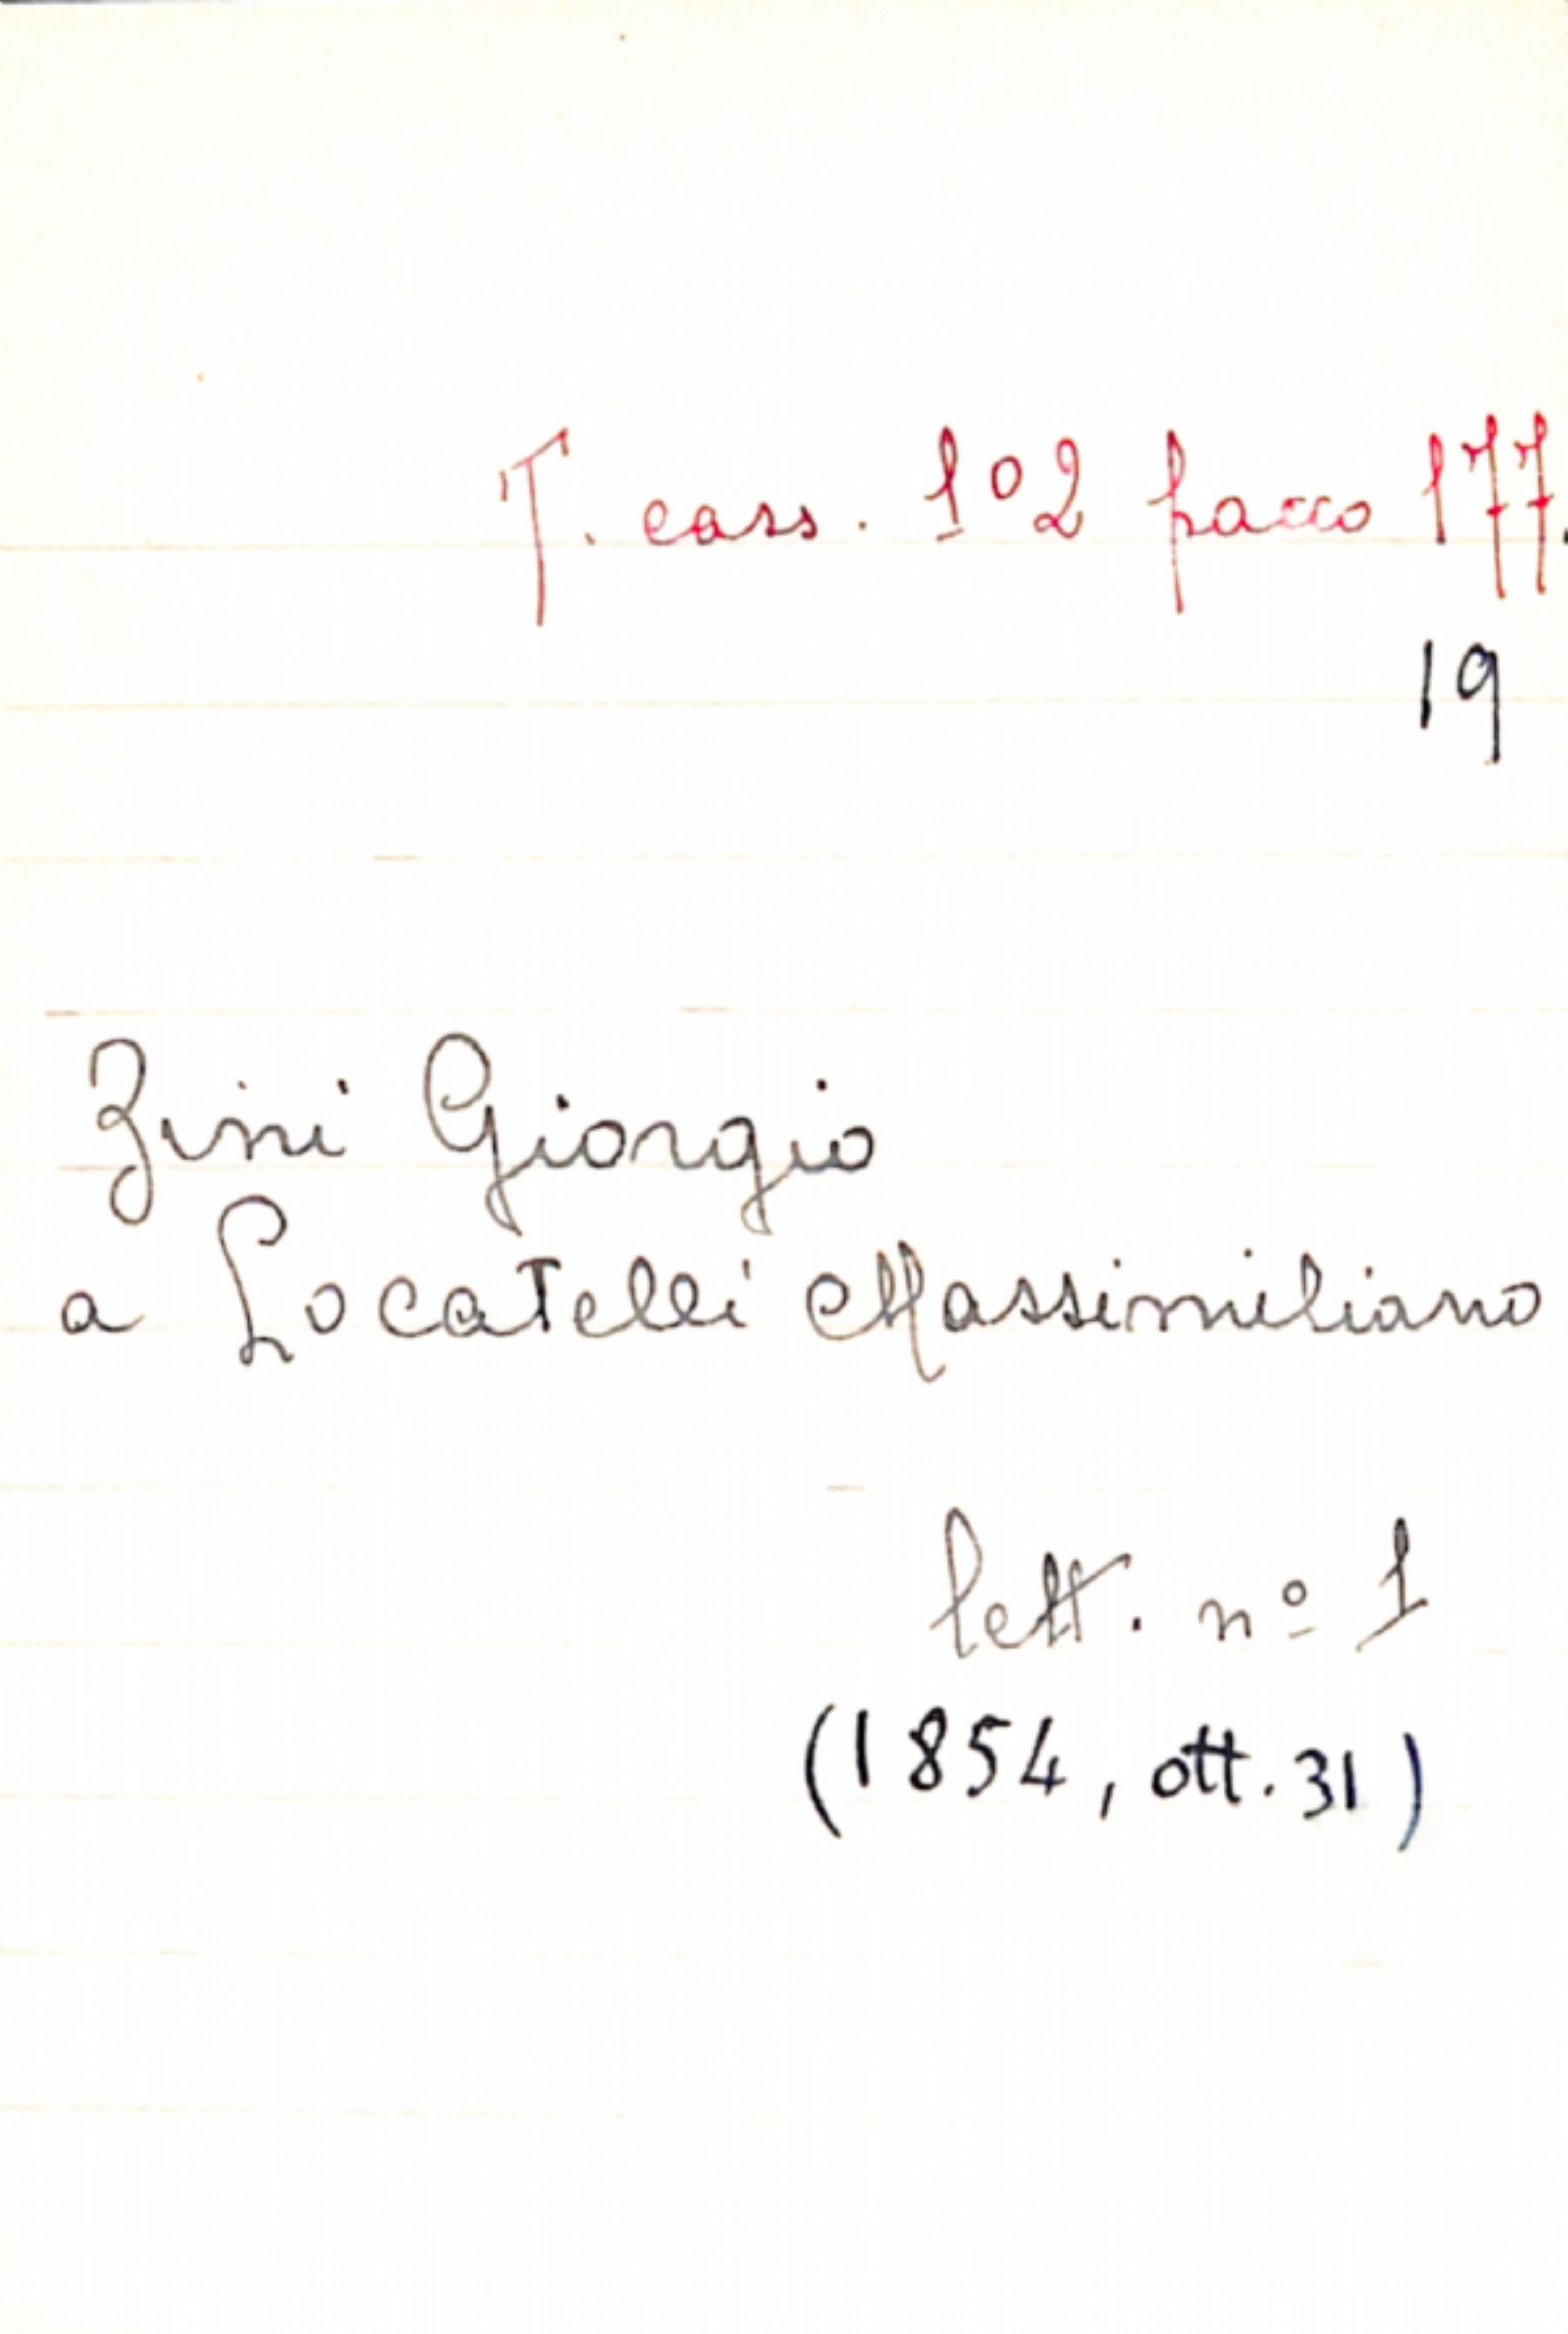 T. cass. 102 pacco 177.
19
Zini Giorgio
a Locatelli Massimiliano
lett. nº 1
(1854, ott. 31)